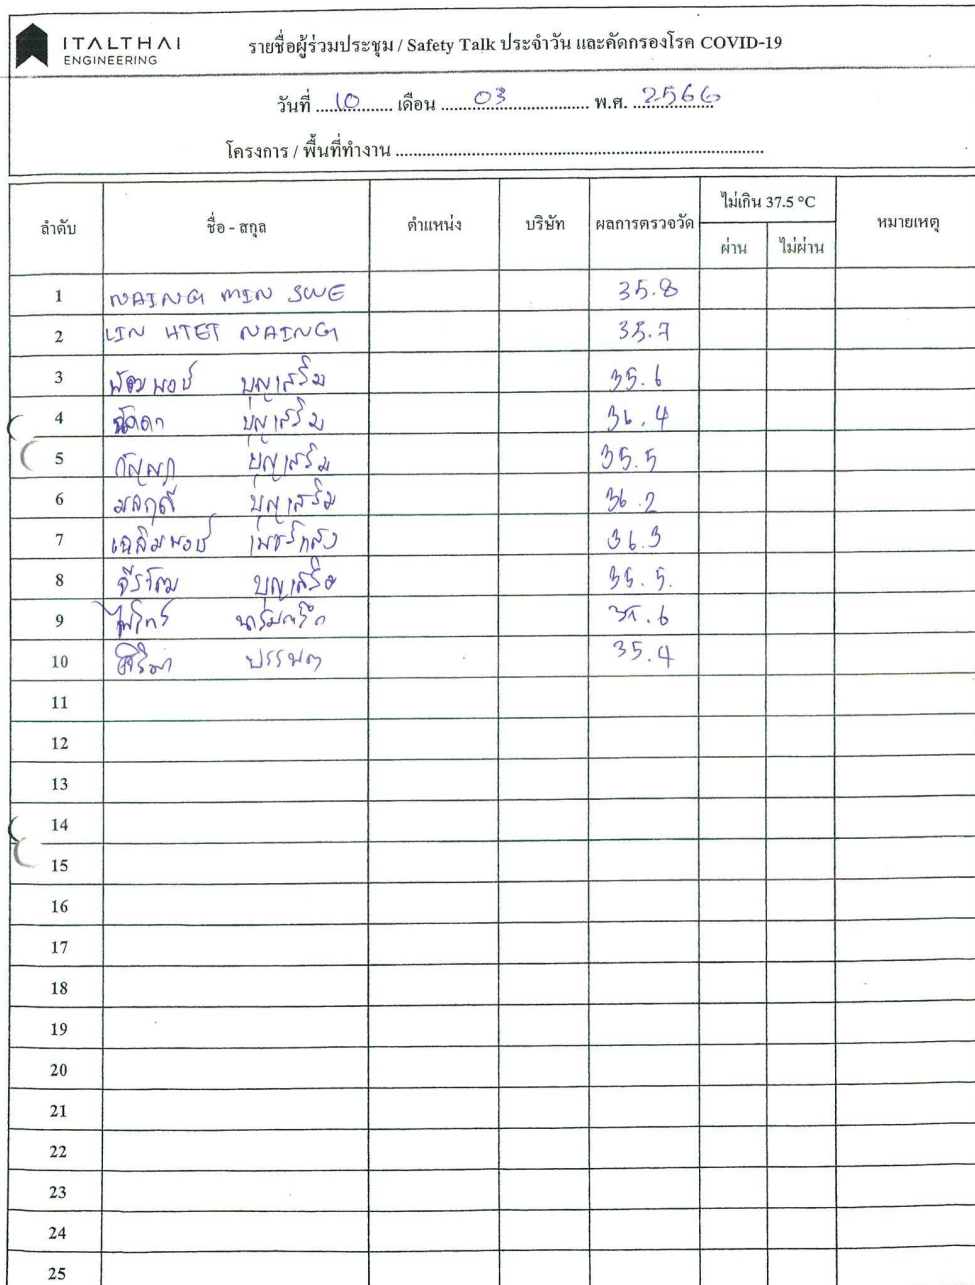 ITALTHAI
ENGINEERING
รายชื่อผู้ร่วมประชุม / Safety Talk ประจำวัน และคัดกรองโรค COVID-19
วันที่ 10 เดือน 03 พ.ศ. 2566
โครงการ / พื้นที่ทำงาน
ลำดับ ชื่อ - สกุล ตำแหน่ง บริษัท ผลการตรวจวัด ไม่เกิน 37.5 °C หมายเหตุ
ผ่าน ไม่ผ่าน
1 NAING MIN SWE 35.8
2 LIN HTET NAING 35.7
3 บุญเสริม 35.6
4 บุญเสริม 36.4
5 บุญเสริม 35.5
6 บุญเสริม 36.2
7 เฉลิมพงษ์ 36.3
8 บุญเสริม 35.5
9 35.6
10 บรรพต 35.4
11
12
13
14
15
16
17
18
19
20
21
22
23
24
25